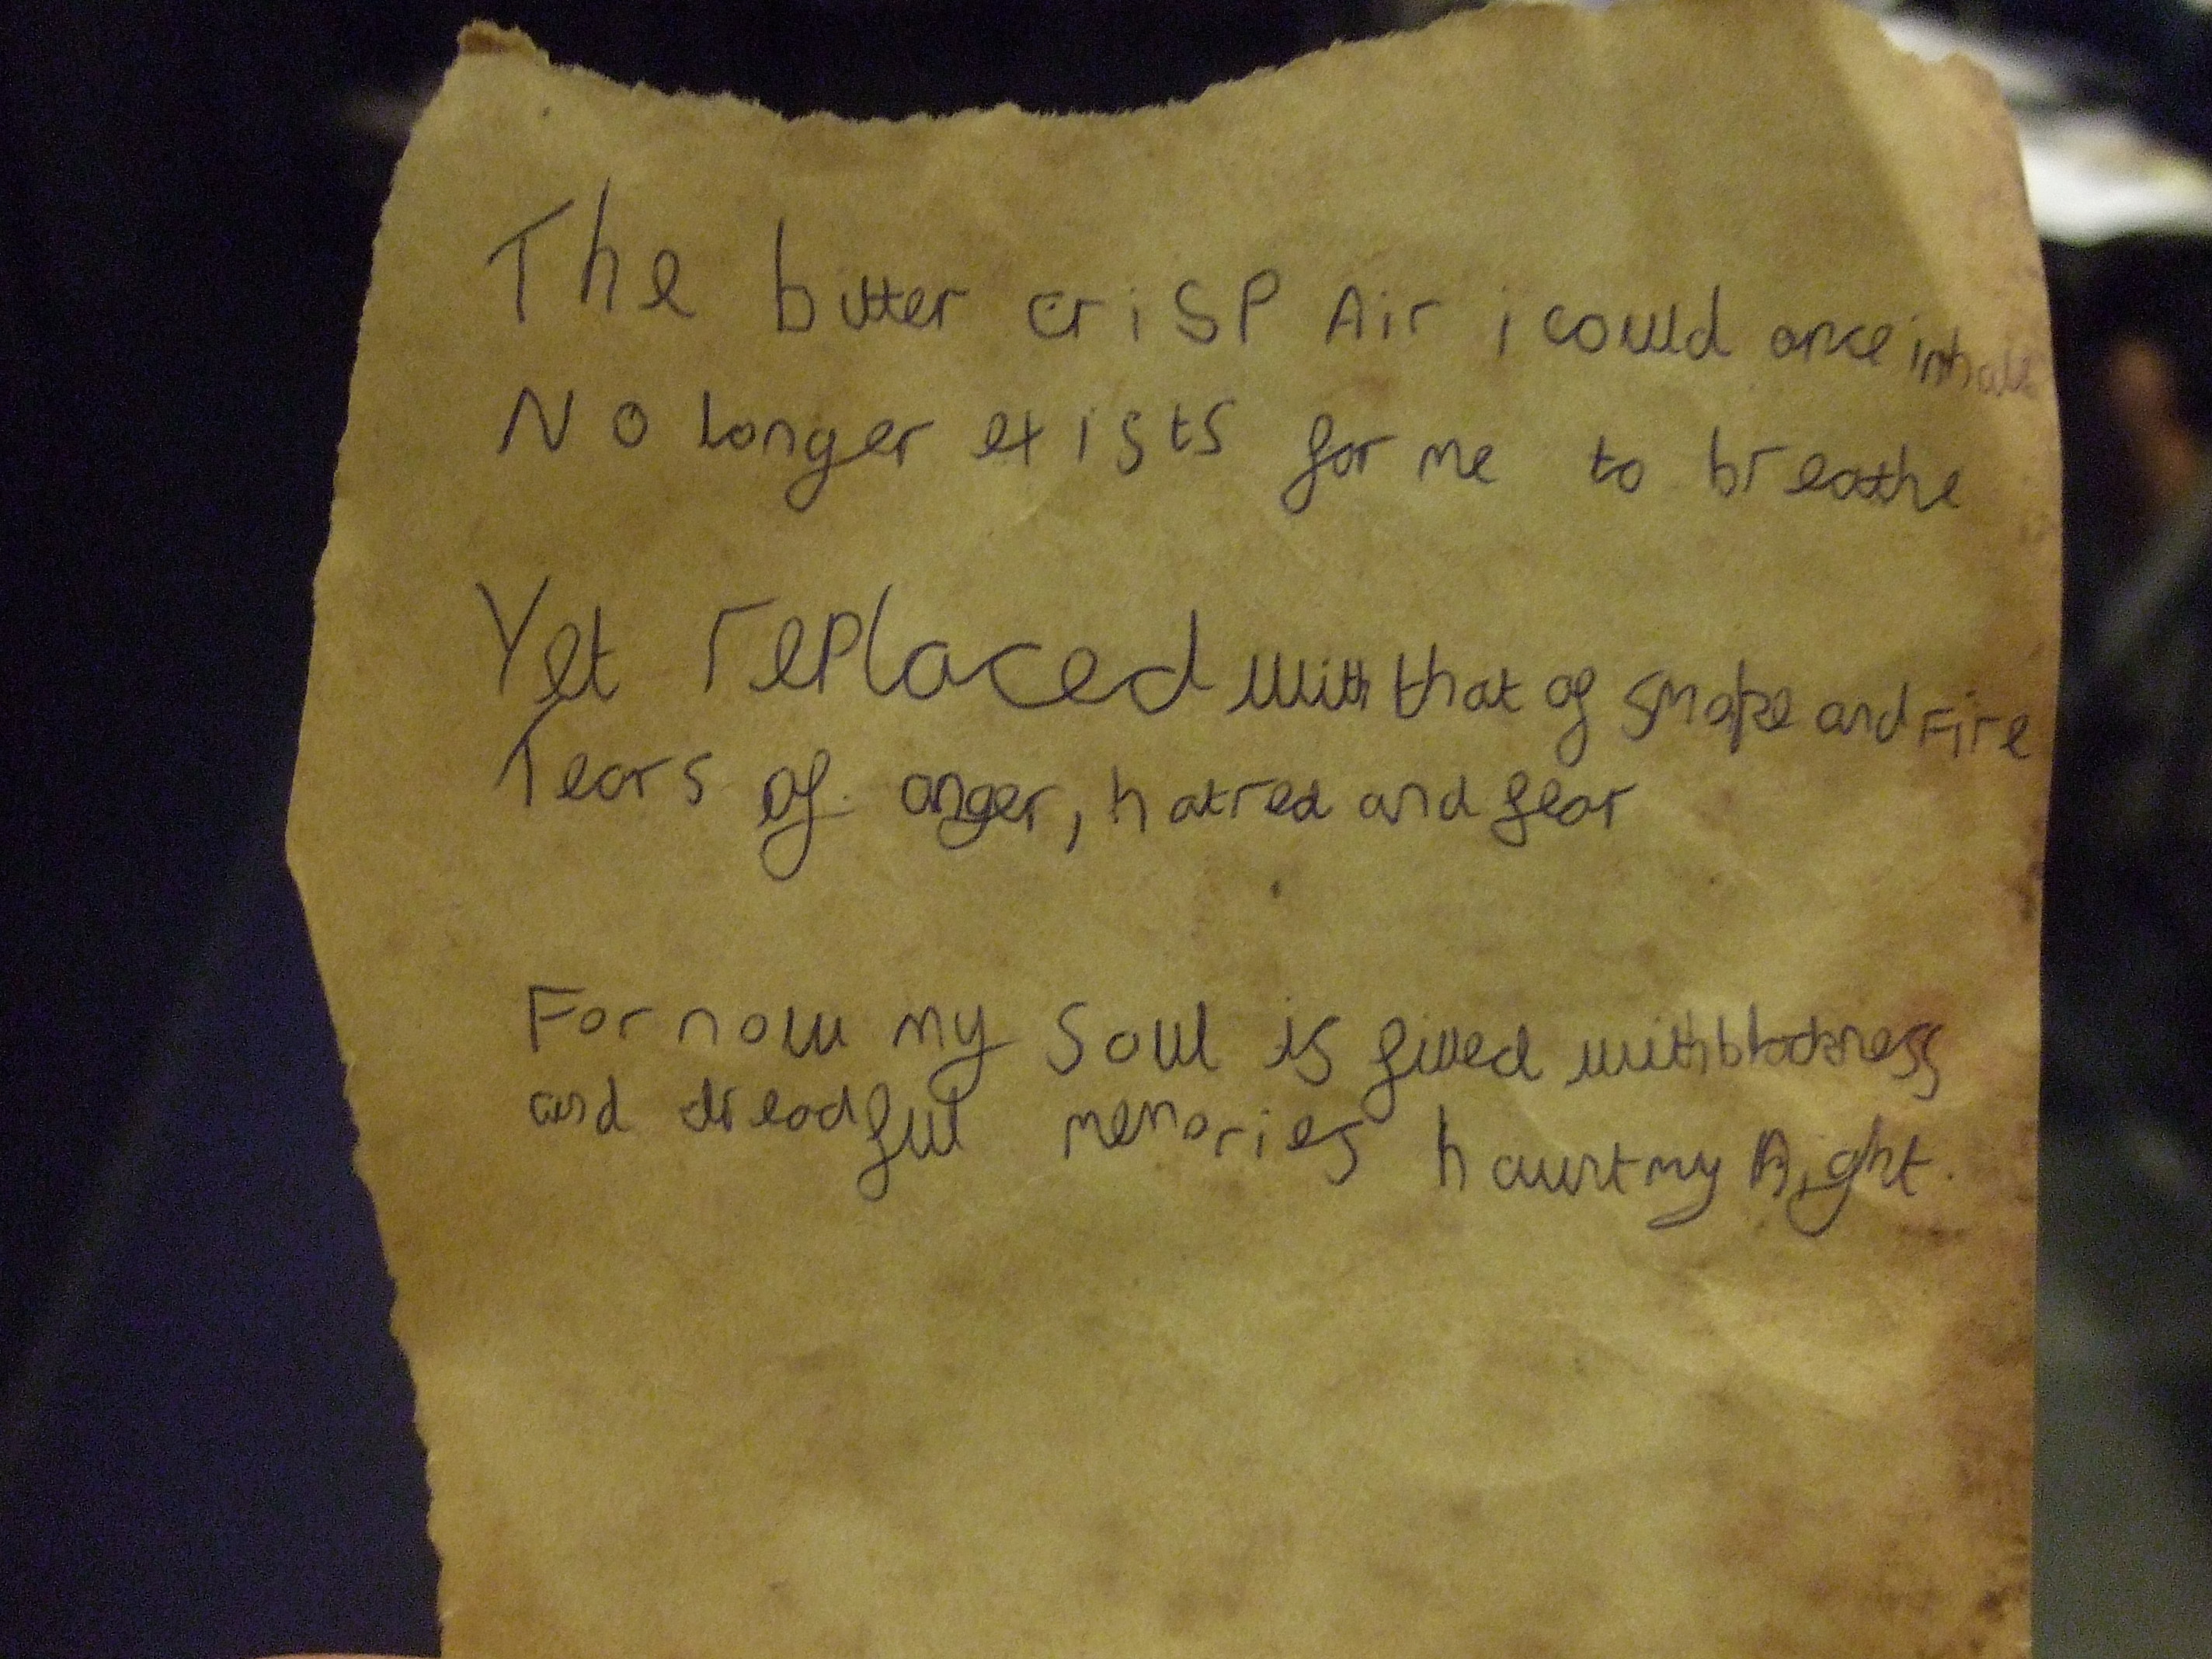 The bitter criSP Air i could once inhale
No longer exists for me to breathe
Yet replaced with that of smoke and Fire
Tears of anger, hatred and fear
For now my Soul is filled with blackness
and dreadful memories haunt my Night.